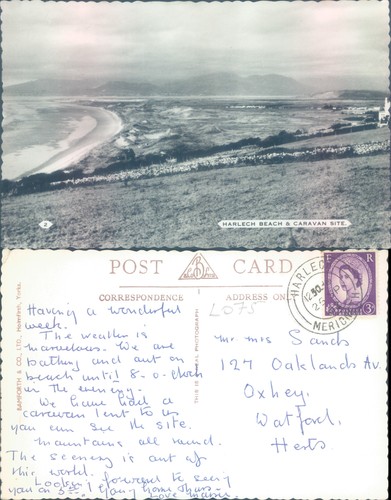 2
HARLECH BEACH & CARAVAN SITE.
POST CARD
CORRESPONDENCE
ADDRESS ONLY
BAMFORTH & CO., LTD., Holmfirth, Yorks.
THIS IS A REAL PHOTOGRAPH
LO75
HARLECH
MERION
E R
Having a wonderful
week.
The weather is
marvelous. We are
bathing and out on
beach until 8-0-clock
in the evening.
We have had a
caravan lent to us
you can see the site.
mountains all round.
The scenery is out of
this world.
Looking forward to seeing
you on
Mr Mrs Sands
127 Oaklands Av
Oxhey.
Watford,
Herts.